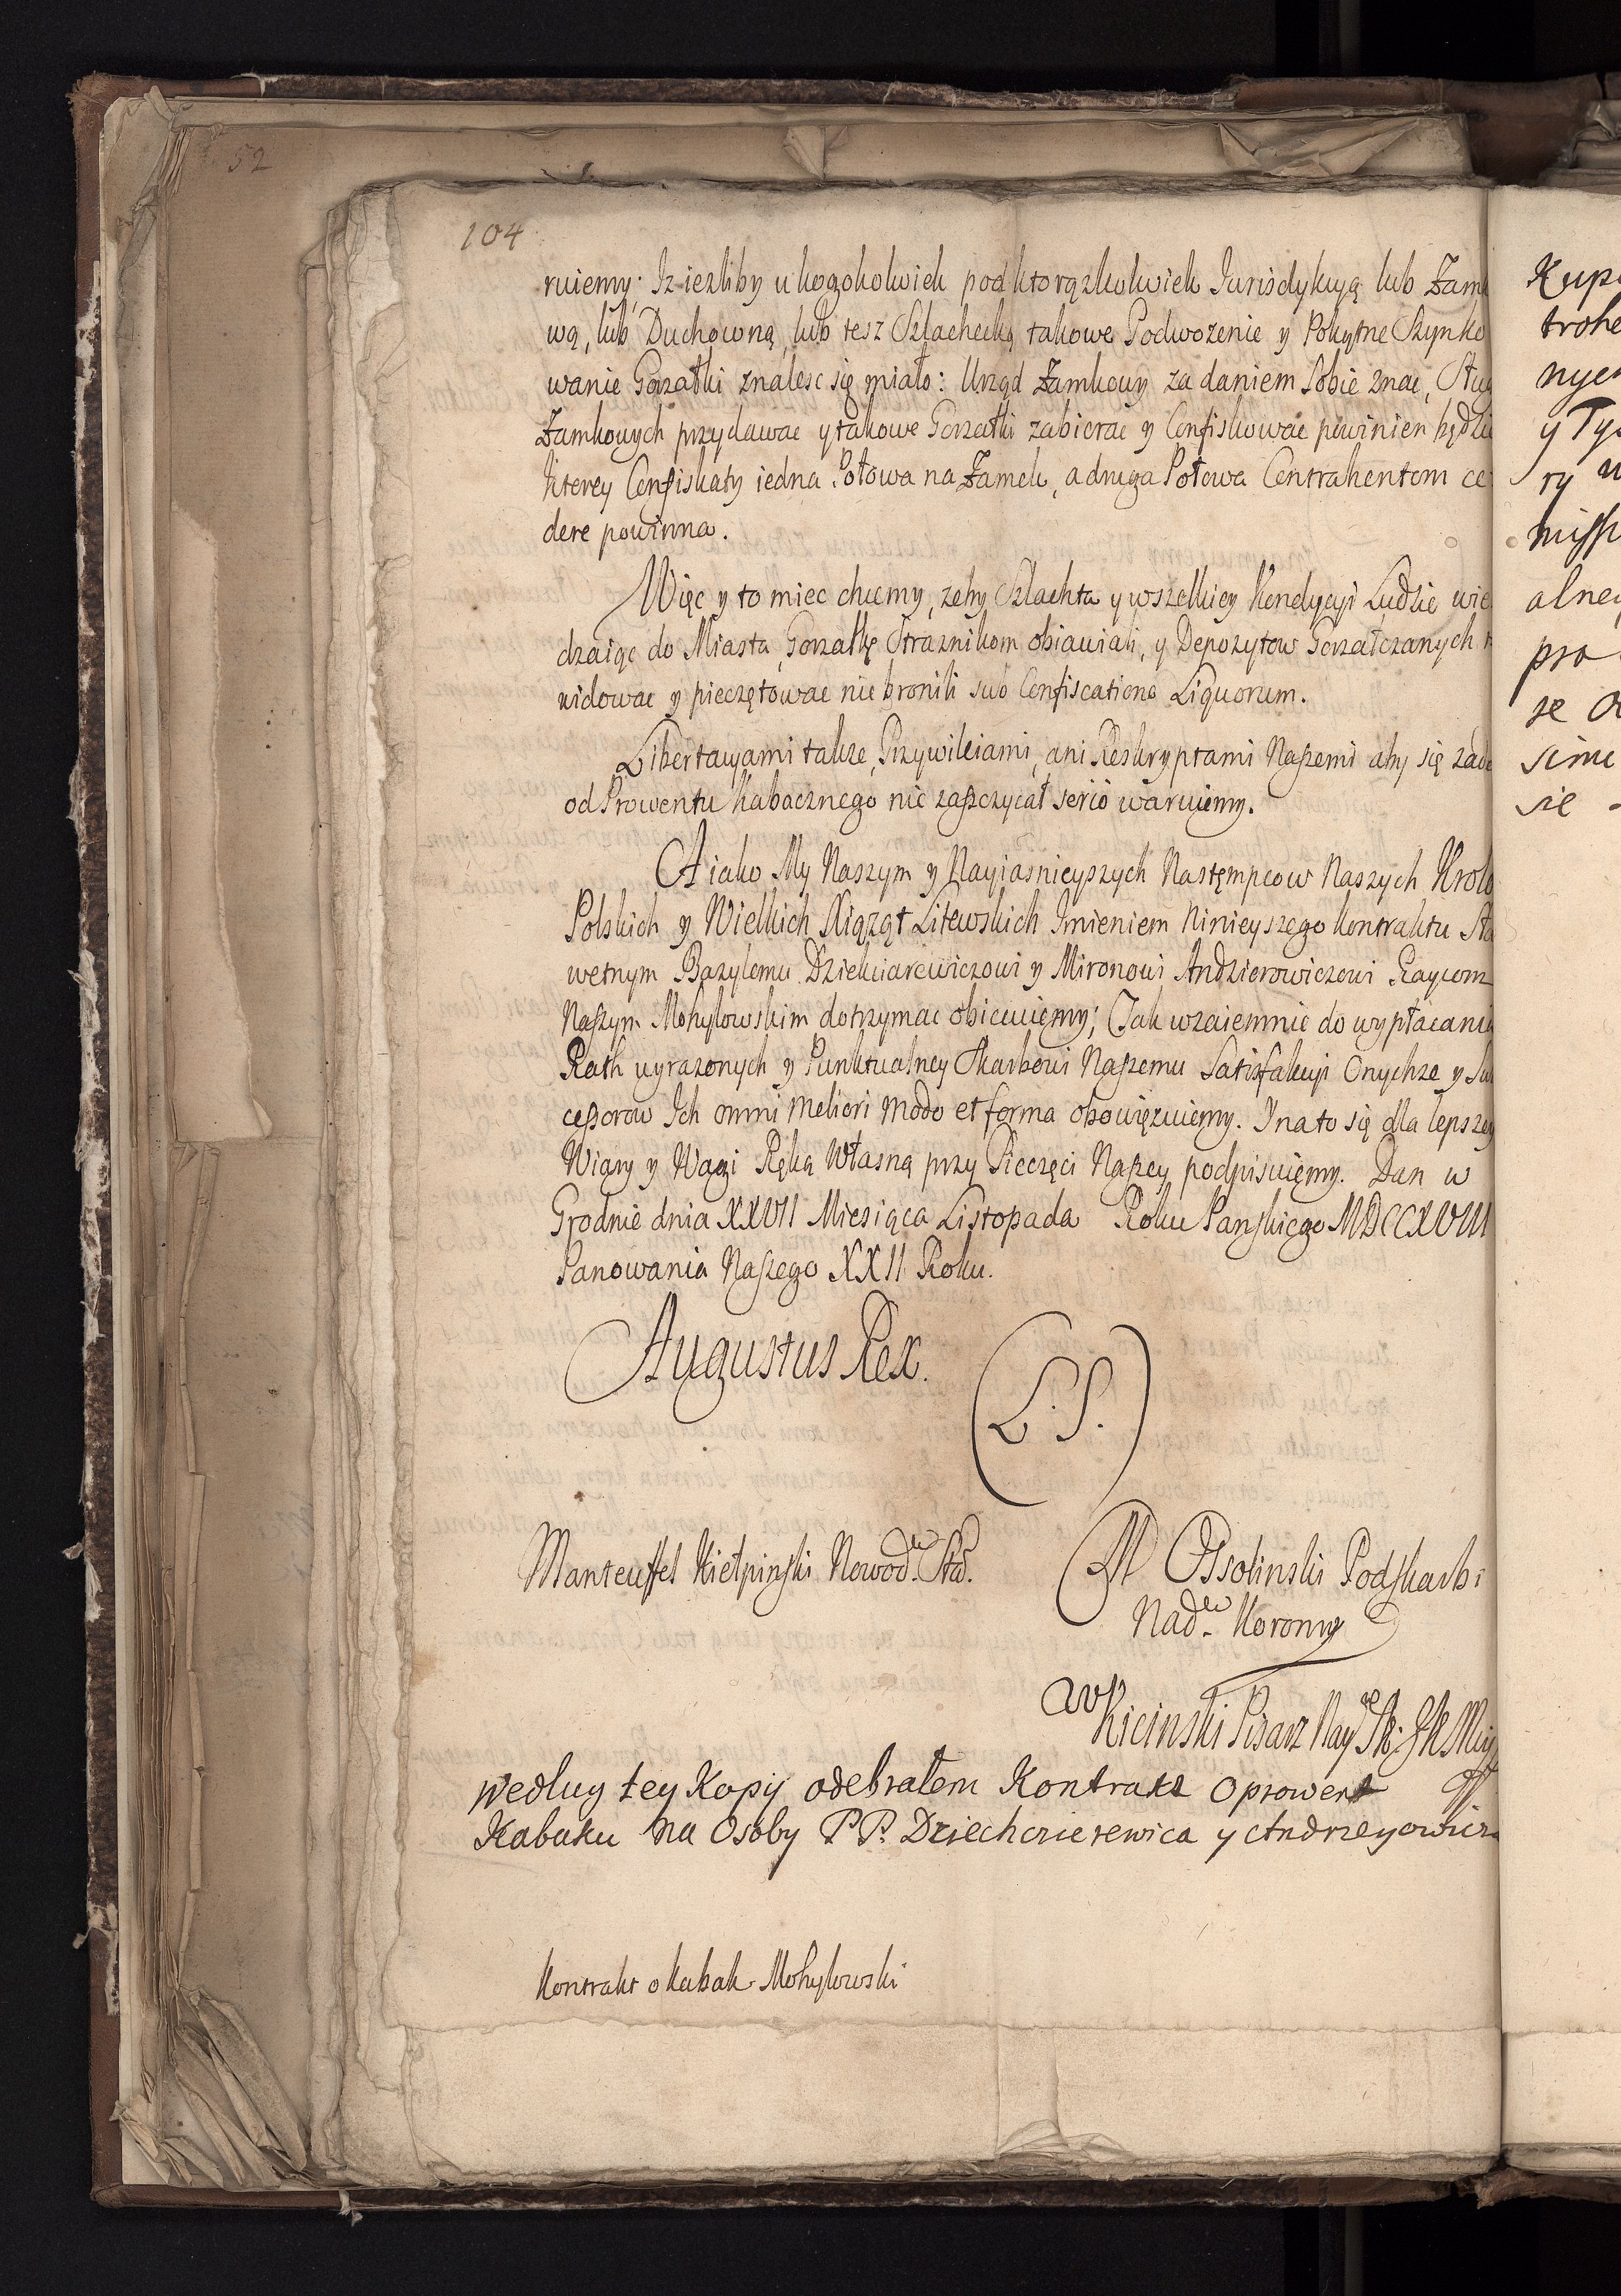 52
104
ruiemy; Iz ieżliby u kogokolwiek pod ktorążkolwiek Jurisdykcyą lub Zamk
wą, lub Duchowną, lub tesz Szlachecką takowe Podwozenie y Pokątne Szynko
wanie Gorzałki znalesc się miało: Urząd Zamkowy za daniem sobie znac, Sług
Zamkowych przydawac y takowe Gorzałki zabierac y Confiskowac powinien będzie
ktorey Confiskaty iedna Połowa na Zamek, a druga Połowa Contrahentom ce
dere powinna.
Więc y to miec chcemy, zeby Szlachta y wszelkiey Kondycyi Ludzie wie
dzaiąc do Miasta, Gorzałkę Straznikom obiawiali, y Depozytow Gorzałczanych
widowac y pieczętowac nie bronili sub Confiscatione Liquorum.
Libertacyami takze, Przywileiami, ani Reskryptami Naszemi aby się zade
od Prowentu Kabacznego nie zaszczycał serio waruiemy.
A iako My Naszym y Nayiasnieyszych Nastęmpcow Naszych Krolo
Polskich y Wielkich Xiąząt Litewskich Imieniem Ninieyszego Kontraktu Sła
wetnym Bazylemu Dziekciarewiczowi y Mironowi Andzierowiczowi Raycom
Naszym Mohylowskim dotrzymac obiecuięmy; Tak wzaiemnie do wypłacania
Rath wyrazonych y Punktualney Skarbowi Naszemu Satisfakcyi Onychze y Suk
cessorow Ich omni meliori modo et forma obowięzuiemy. Y na to się dla lepszey
Wiary y Wagi Ręką Własną przy Pieczęci Naszey podpisuięmy. Dan w
Grodnie dnia XXVII Miesiąca Listopada Roku Panskiego MDCCXVIII
Panowania Naszego XXII Roku.
Augustus Rex.
(L.S.)
Manteuffel Kiełpinski Nowod. Sta.
M Ossolinski Podskarbi
Nad. Koronny
Kicinski Pisarz Nay
według tey Kopij odebrałem Kontrakt o prowent
Kabaku na Osoby P P. Dziechcierewica y Andrzeyowicza
Kontrakt o Kabak Mohylowski
Kupc
trohe
nych
y Ty
ry
miss
alney
pro
se
sime
sie